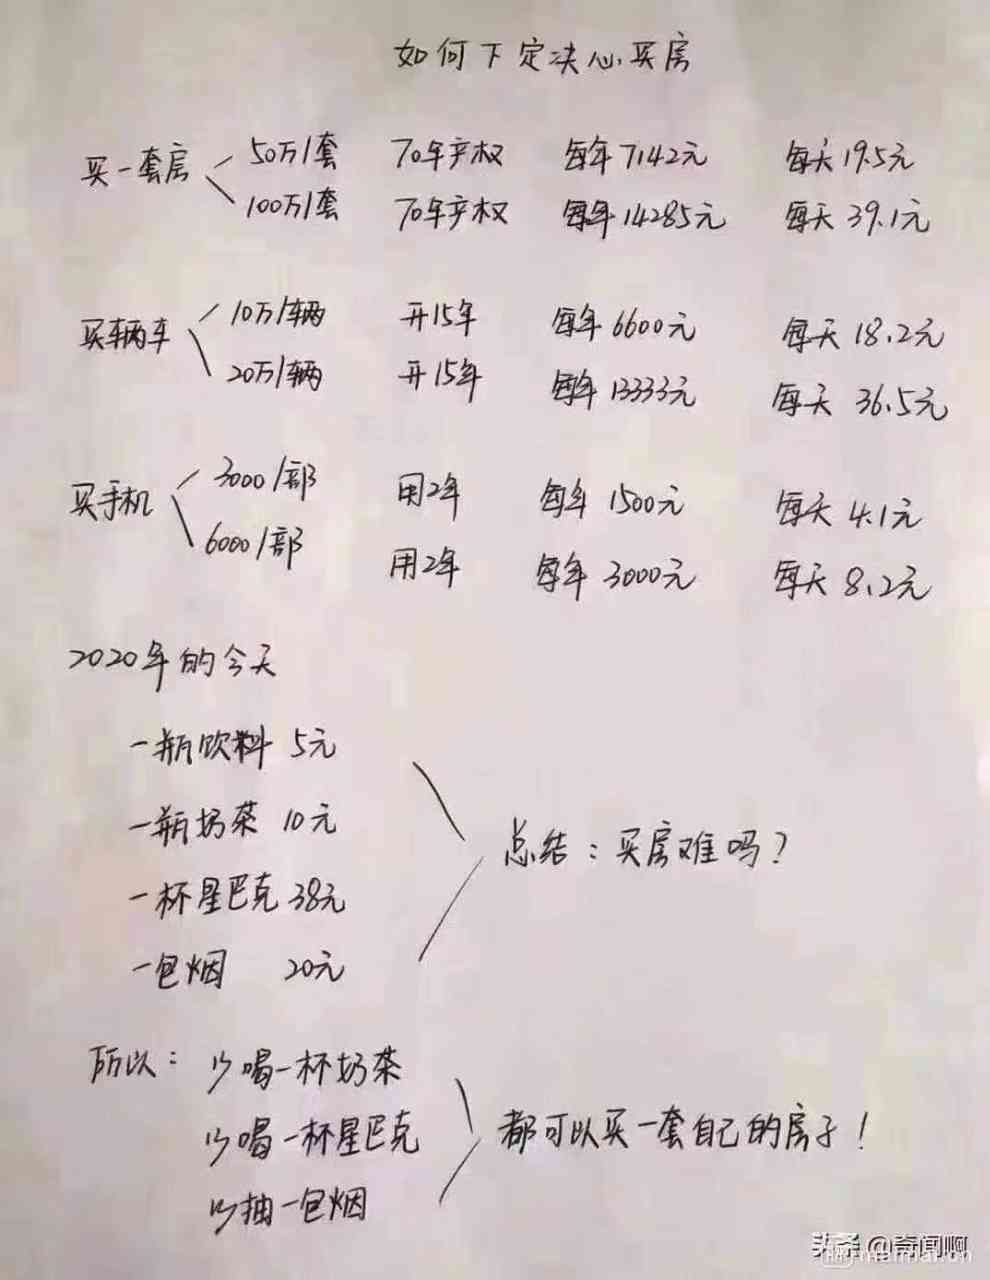 如何下定决心买房
买一套房 50万/套 70年产权 每年7142元 每天19.5元
100万/套 70年产权 每年14285元 每天39.1元
买辆车 10万/辆 开15年 每年6600元 每天18.2元
20万/辆 开15年 每年13333元 每天36.5元
买手机 3000/部 用2年 每年1500元 每天4.1元
6000/部 用2年 每年3000元 每天8.2元
2020年的今天
一瓶饮料 5元
一瓶奶茶 10元
一杯星巴克 38元
一包烟 20元
总结：买房难吗？
所以：少喝一杯奶茶
少喝一杯星巴克
少抽一包烟
都可以买一套自己的房子！
头条 @奇闻啊